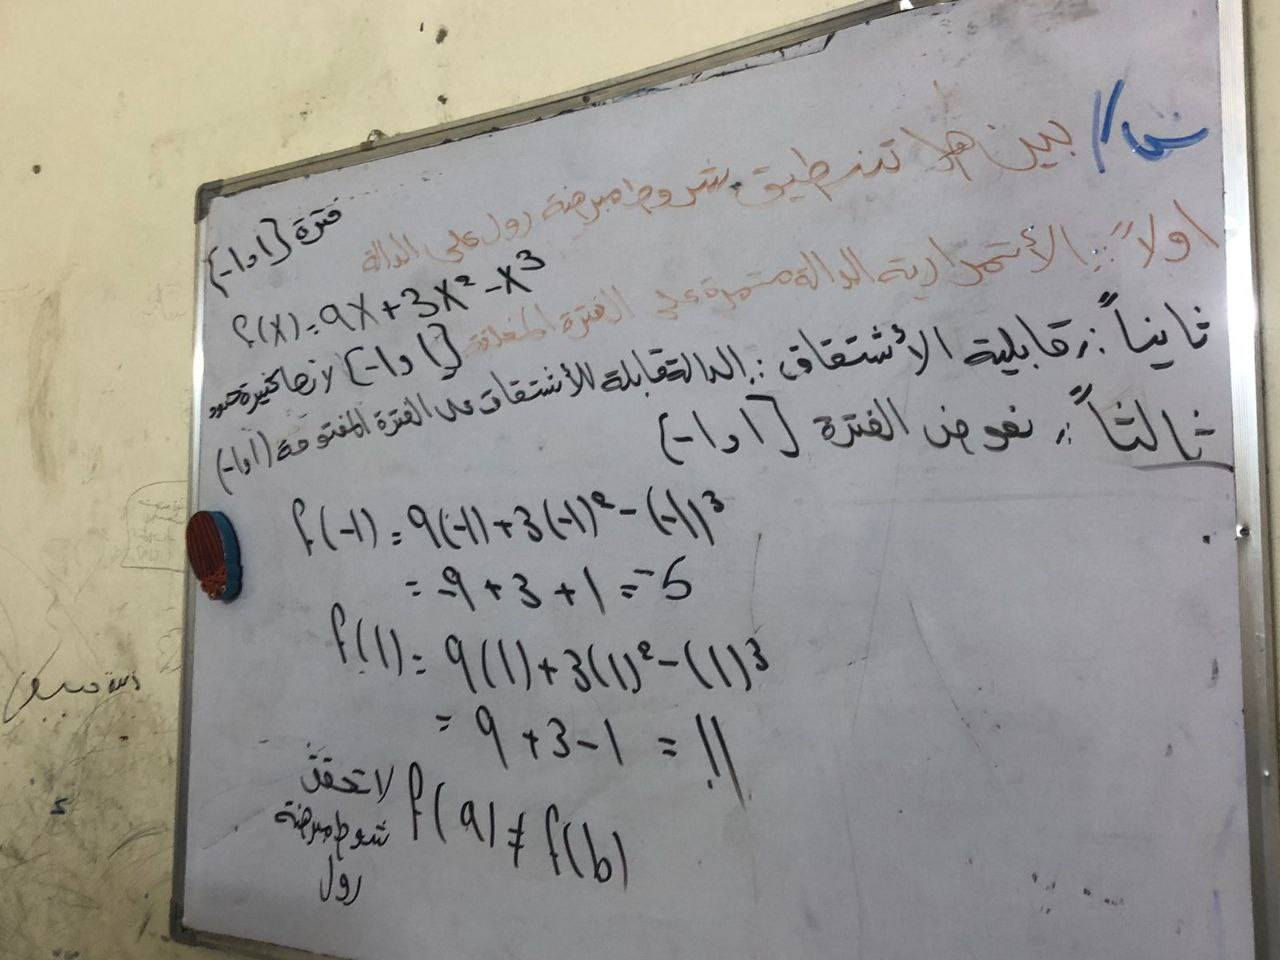 س// بين هل تنطبق شروط مبرهنة رول على الدالة
فترة [-1و1]
f(x) = 9x + 3x² - x³
اولاً :. الأستمرارية الدالة مستمرة على الفترة المغلقة [-1و1] لأنها كثيرة حدود
ثانياً :. قابلية الأشتقاق :. الدالة قابلة للأشتقاق على الفترة المفتوحة (-1و1)
ثالثاً :. نعوض الفترة [-1و1]
f(-1) = 9(-1) + 3(-1)² - (-1)³
= -9 + 3 + 1 = -5
f(1) = 9(1) + 3(1)² - (1)³
= 9 + 3 - 1 = 11
f(a) ≠ f(b)
لا تحقق
شروط مبرهنة
رول